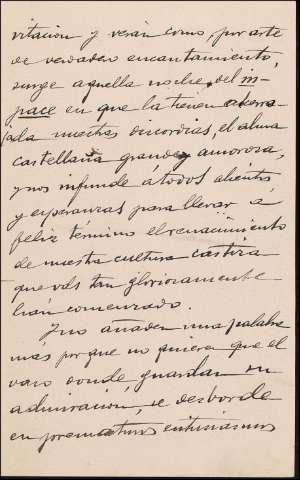 vitación y verán como, por arte
de verdadero encantamiento,
surge aquella noche, del in-
pace en que la tienen aherro-
jada nuestras discordias, el alma
castellana grande y amorosa,
y nos infunde a todos alientos
y esperanzas para llevar á
feliz término el renacimiento
de nuestra cultura castiza
que vds tan gloriosamente
han comenzado.
Y no añaden una palabra
más porque no quiera que el
vaso donde guardan su
admiración, se desborde
en prematuros entusiasmos